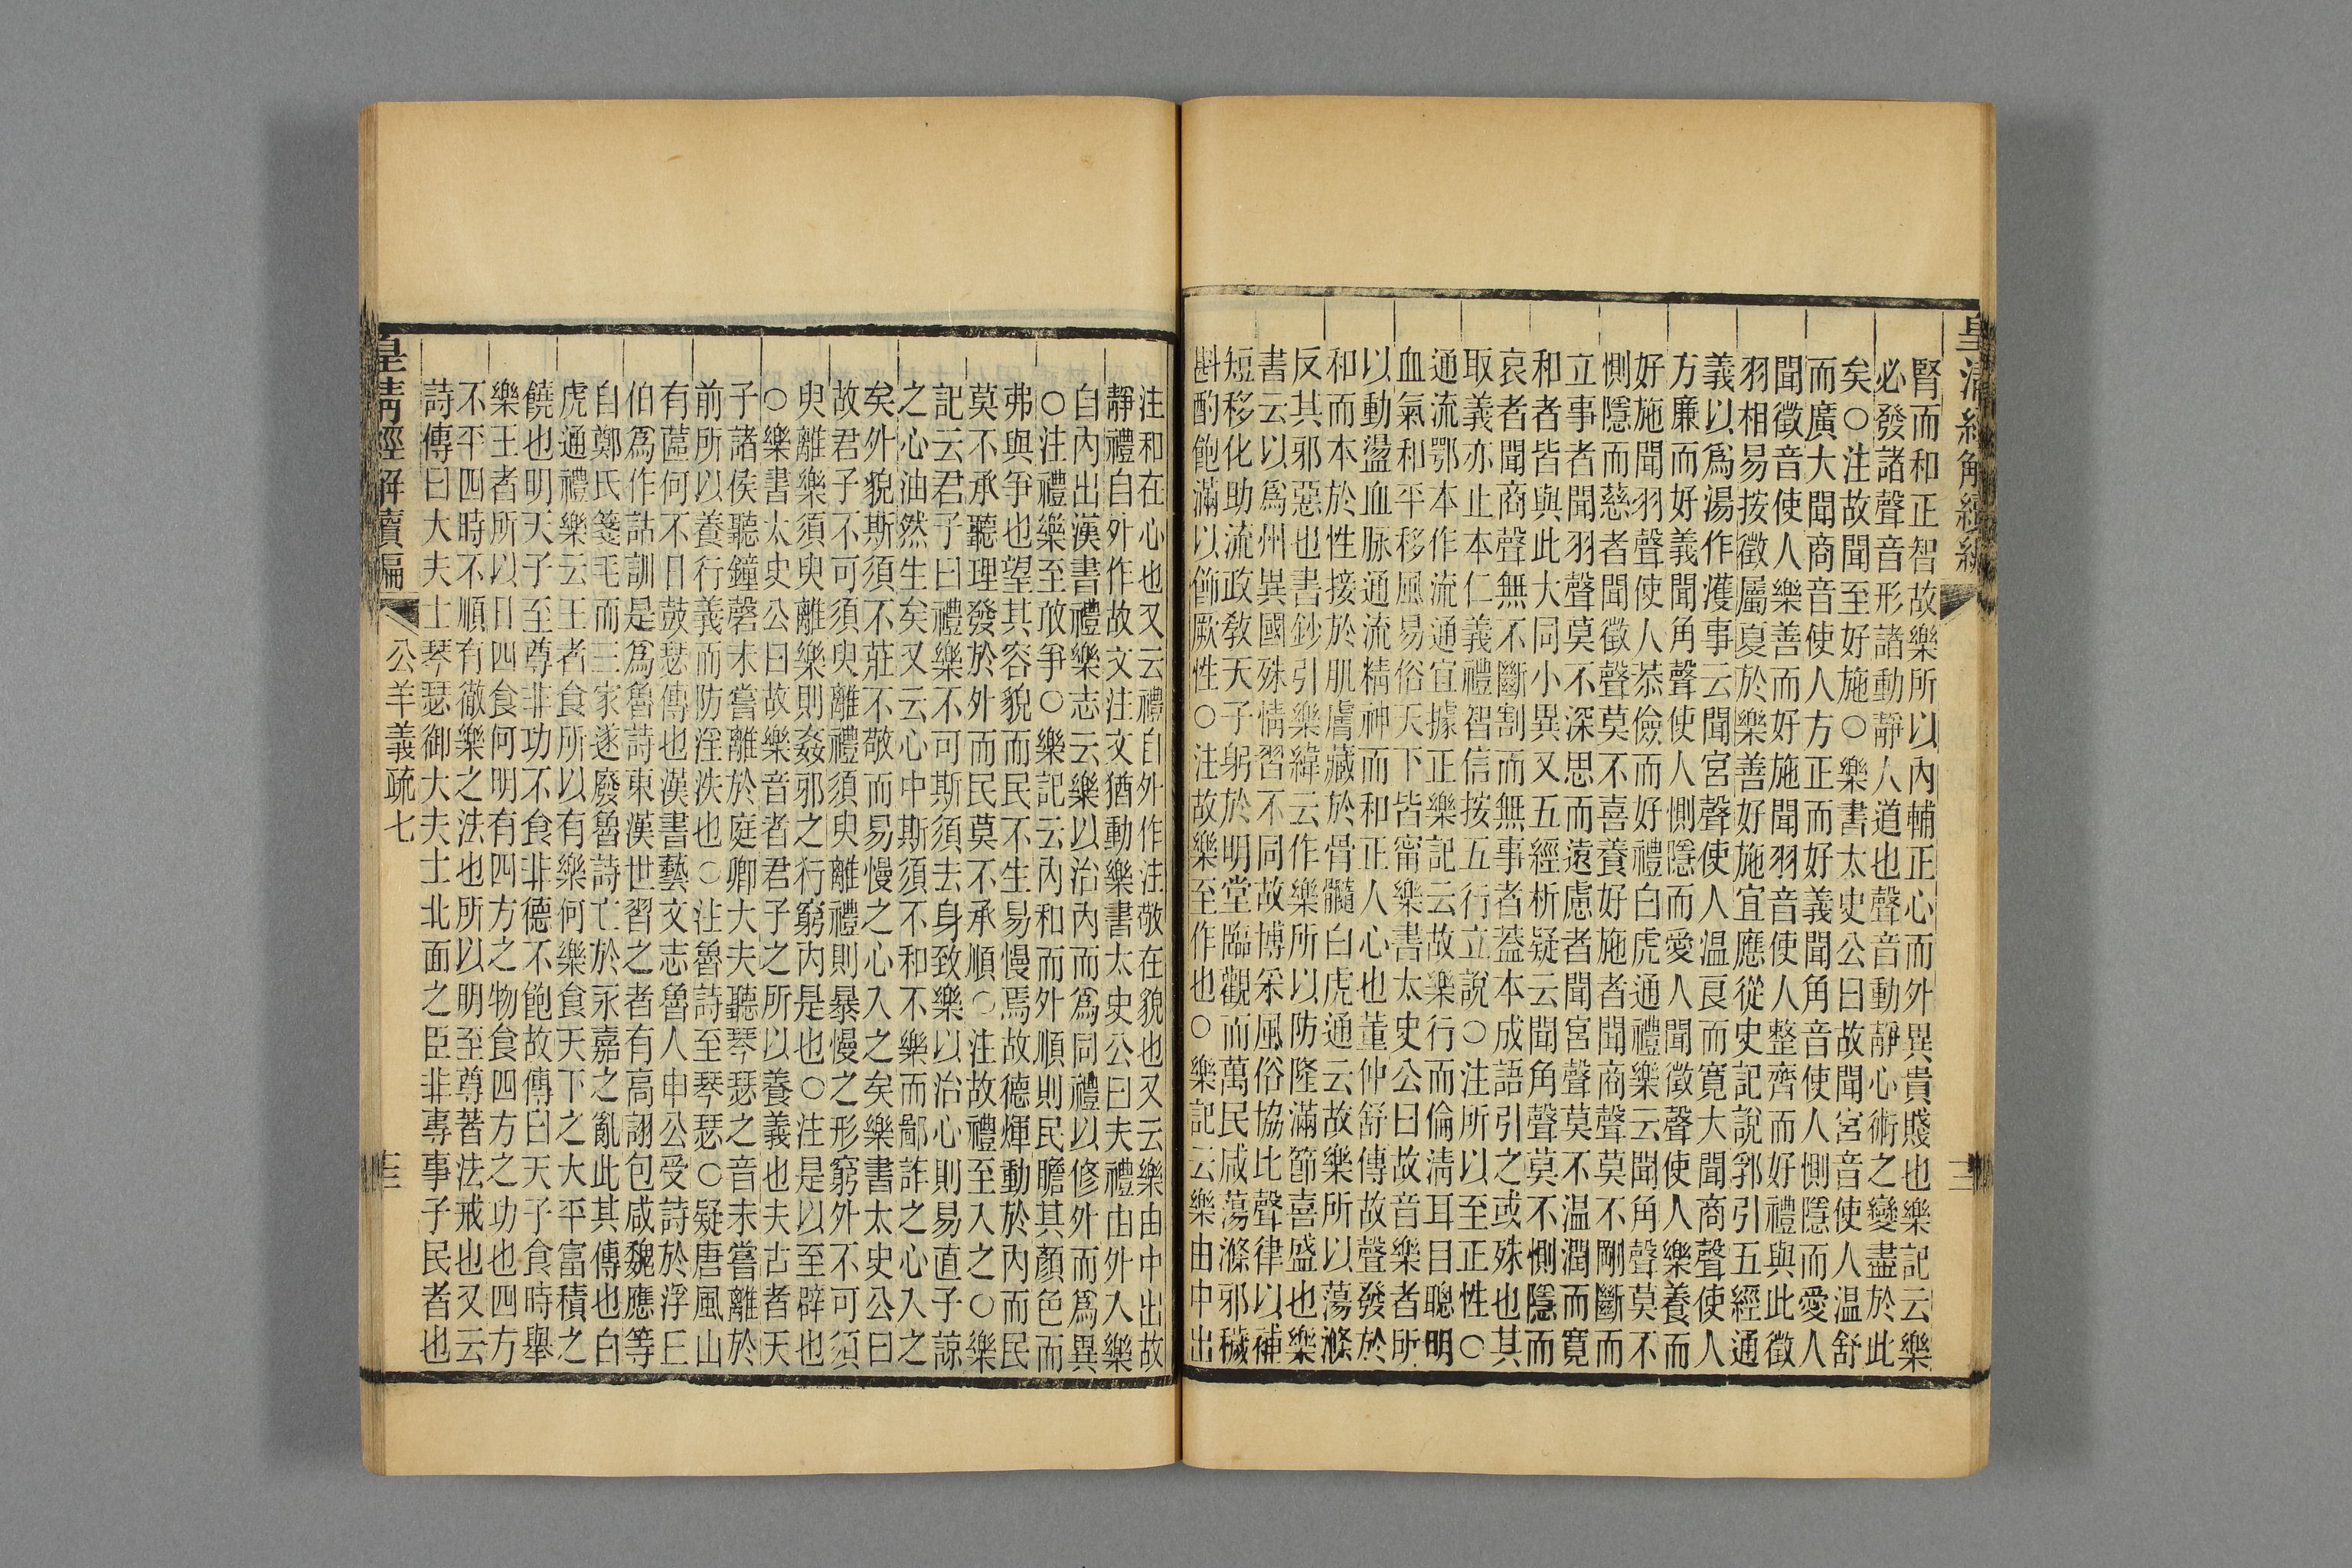 皇清經解續編
腎而和正智故樂所以內輔正心而外異貴賤也樂記云樂
必發諸聲音形諸動靜人道也聲音動靜心術之變盡於此
矣○注故聞至好施○樂書太史公曰故聞宮音使人温舒
而廣大聞商音使人方正而好義聞角音使人惻隱而愛人
聞徵音使人樂善而好施聞羽音使人整齊而好禮與此徵
羽相易按徵屬夏於樂善好施宜應從史記說郛引五經通
義以爲湯作濩事云聞宮聲使人温良而寬大聞商聲使人
方廉而好義聞角聲使人惻隱而愛人聞徵聲使人樂養而
好施聞羽聲使人恭儉而好禮白虎通禮樂云聞角聲莫不
惻隱而慈者聞徵聲莫不喜養好施者聞商聲莫不剛斷而
立事者聞羽聲莫不深思而遠慮者聞宮聲莫不温潤而寬
和者皆與此大同小異又五經析疑云聞角聲莫不惻隱而
哀者聞商聲無不斷割而無事者葢本成語引之或殊也其
取義亦止本仁義禮智信按五行立說○注所以至正性○
通流鄂本作流通宜據正樂記云故樂行而倫清耳目聰明
血氣和平移風易俗天下皆甯樂書太史公曰故音樂者所
以動盪血脉通流精神而和正人心也董仲舒傳故聲發於
和而本於性接於肌膚藏於骨髓白虎通云故樂所以蕩滌
反其邪惡也書鈔引樂緯云作樂所以防隆滿節喜盛也樂
書云以爲州異國殊情習不同故博采風俗協比聲律以補
短移化助流政敎天子躬於明堂臨觀而萬民咸蕩滌邪穢
斟酌飽滿以飾厥性○注故樂至作也○樂記云樂由中出
注和在心也又云禮自外作注敬在貌也又云樂由中出故
靜禮自外作故文注文猶動樂書太史公曰夫禮由外入樂
自內出漢書禮樂志云樂以治內而爲同禮以修外而爲異
○注禮樂至敢爭○樂記云內和而外順則民瞻其顏色而
弗與爭也望其容貌而民不生易慢焉故德煇動於內而民
莫不承聽理發於外而民莫不承順○注故禮至入之○樂
記云君子曰禮樂不可斯須去身致樂以治心則易直子諒
之心油然生矣又云心中斯須不和不樂而鄙詐之心入之
矣外貌斯須不莊不敬而易慢之心入之矣樂書太史公曰
故君子不可須臾離禮須臾離禮則暴慢之形窮外不可須
臾離樂須臾離樂則姦邪之行窮內是也○注是以至辟也
○樂書太史公曰故樂音者君子之所以養義也夫古者天
子諸侯聽鐘磬未嘗離於庭卿大夫聽琴瑟之音未嘗離於
前所以養行義而防淫泆也○注魯詩至琴瑟○疑唐風山
有蓲何不日鼓瑟傳也漢書藝文志魯人申公受詩於浮丘
伯爲作詁訓是爲魯詩東漢世習之者有高詡包咸魏應等
自鄭氏箋毛而三家遂廢魯詩亡於永嘉之亂此其傳也白
虎通禮樂云王者食所以有樂何樂食天下之大平富積之
饒也明天子至尊非功不食非德不飽故傳曰天子食時舉
樂王者所以日四食何明有四方之物食四方之功也四方
不平四時不順有徹樂之法也所以明至尊著法戒也又云
詩傳曰大夫士琴瑟御大夫士北面之臣非專事子民者也
皇清經解續編
公羊義疏七